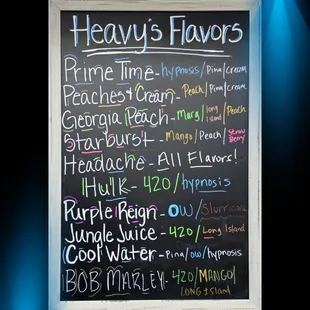 Heavy's Flavors
Prime Time - hypnosis / Pina / cream
Peaches & Cream - Peach / Pina / cream
Georgia Peach - Marg / long island / Peach
Starburst - Mango / Peach / Straw Berry
Headache - All Flavors!
Hulk - 420 / hypnosis
Purple Reign - OW / Slurricane
Jungle Juice - 420 / Long Island
Cool Water - Pina / OW / hypnosis
BOB MARLEY - 420 / MANGO /
LONG Island